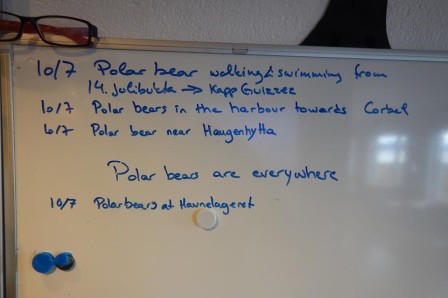 10/7 Polar bear walking & swimming from
14. Julibukta → Kapp Guizzez
10/7 Polar bears in the harbour towards Corbel
6/7 Polar bear near Haugenhytta
Polar bears are everywhere
10/7 Polarbears at Havnelageret